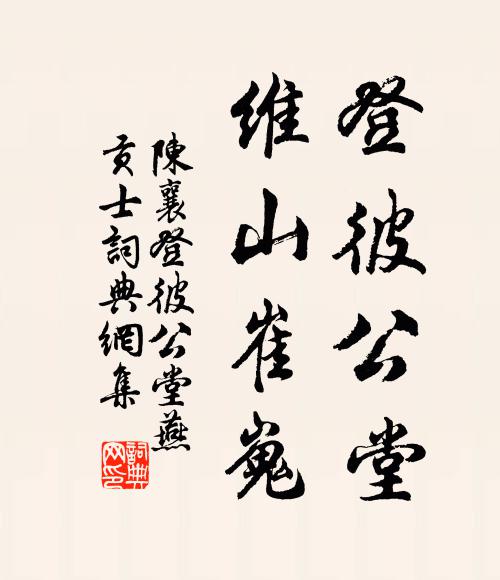 登彼公堂
維山崔嵬
陳襄登彼公堂燕
貢士詞典網集
詞典網印